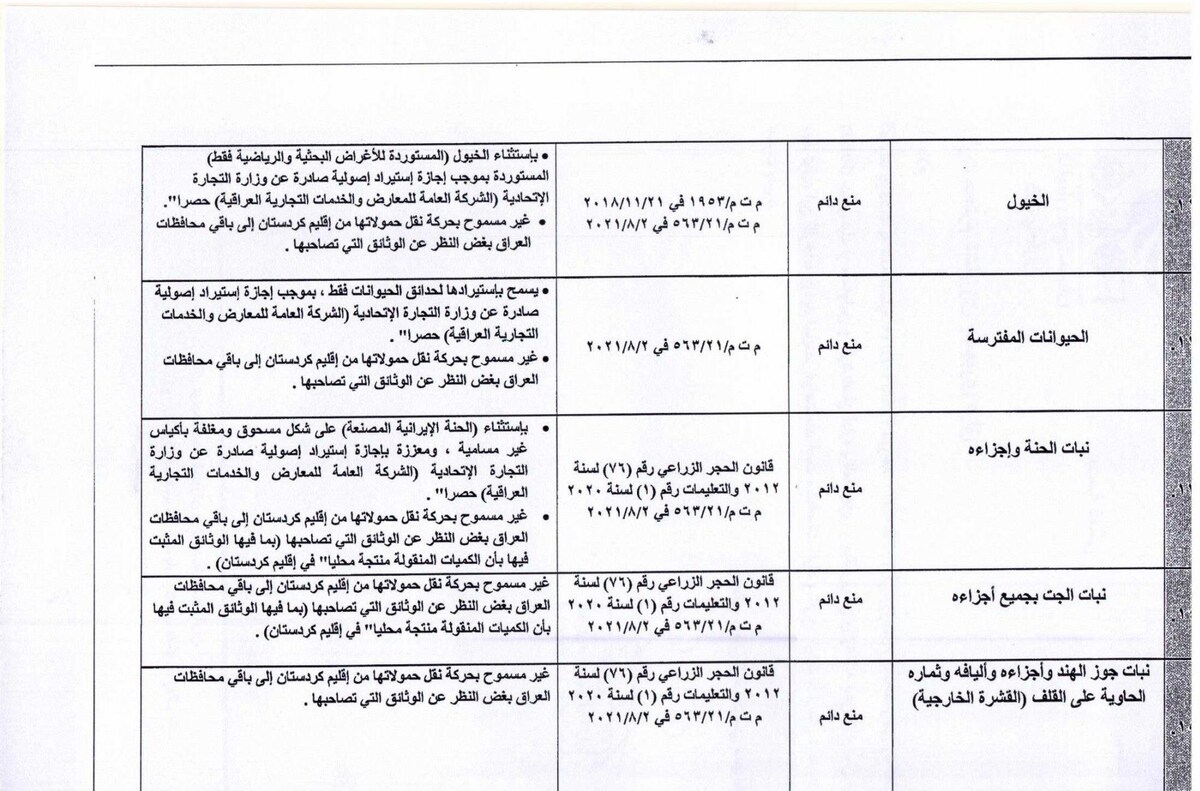 الخيول
منع دائم
م ت م/١٩٥٣ في ٢٠١٨/١١/٢١
م ت م/٥٦٣/٢١ في ٢٠٢١/٨/٢
• بإستثناء الخيول (المستوردة للأغراض البحثية والرياضية فقط)
المستوردة بموجب إجازة إستيراد إصولية صادرة عن وزارة التجارة
الإتحادية (الشركة العامة للمعارض والخدمات التجارية العراقية) حصرا".
• غير مسموح بحركة نقل حمولاتها من إقليم كردستان إلى باقي محافظات
العراق بغض النظر عن الوثائق التي تصاحبها .
الحيوانات المفترسة
منع دائم
م ت م/٥٦٣/٢١ في ٢٠٢١/٨/٢
• يسمح بإستيرادها لحدائق الحيوانات فقط ، بموجب إجازة إستيراد إصولية
صادرة عن وزارة التجارة الإتحادية (الشركة العامة للمعارض والخدمات
التجارية العراقية) حصرا" .
• غير مسموح بحركة نقل حمولاتها من إقليم كردستان إلى باقي محافظات
العراق بغض النظر عن الوثائق التي تصاحبها .
نبات الحنة وإجزاءه
منع دائم
قانون الحجر الزراعي رقم (٧٦) لسنة
٢٠١٢ والتعليمات رقم (١) لسنة ٢٠٢٠
م ت م/٥٦٣/٢١ في ٢٠٢١/٨/٢
• بإستثناء (الحنة الإيرانية المصنعة) على شكل مسحوق ومغلفة بأكياس
غير مسامية ، ومعززة بإجازة إستيراد إصولية صادرة عن وزارة
التجارة الإتحادية (الشركة العامة للمعارض والخدمات التجارية
العراقية) حصرا" .
• غير مسموح بحركة نقل حمولاتها من إقليم كردستان إلى باقي محافظات
العراق بغض النظر عن الوثائق التي تصاحبها (بما فيها الوثائق المثبت
فيها بأن الكميات المنقولة منتجة محليا" في إقليم كردستان) .
نبات الجت بجميع أجزاءه
منع دائم
قانون الحجر الزراعي رقم (٧٦) لسنة
٢٠١٢ والتعليمات رقم (١) لسنة ٢٠٢٠
م ت م/٥٦٣/٢١ في ٢٠٢١/٨/٢
غير مسموح بحركة نقل حمولاتها من إقليم كردستان إلى باقي محافظات
العراق بغض النظر عن الوثائق التي تصاحبها (بما فيها الوثائق المثبت فيها
بأن الكميات المنقولة منتجة محليا" في إقليم كردستان) .
نبات جوز الهند وأجزاءه وأليافه وثماره
الحاوية على القلف (القشرة الخارجية)
منع دائم
قانون الحجر الزراعي رقم (٧٦) لسنة
٢٠١٢ والتعليمات رقم (١) لسنة ٢٠٢٠
م ت م/٥٦٣/٢١ في ٢٠٢١/٨/٢
غير مسموح بحركة نقل حمولاتها من إقليم كردستان إلى باقي محافظات
العراق بغض النظر عن الوثائق التي تصاحبها .